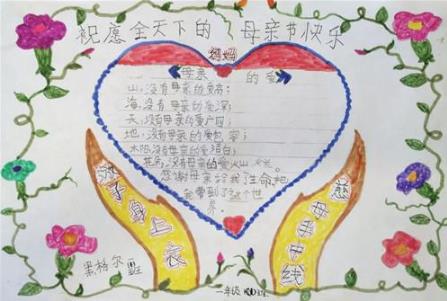 祝愿全天下的母亲节快乐
妈妈
《母亲的爱》
山,没有母亲的爱高;
海,没有母亲的爱深;
天,没有母亲的爱广阔;
地,没有母亲的爱包容;
太阳,没有母亲的爱温
花朵,没有母亲的爱
感谢母亲给我了生命,把
我带到了这个世
界。
游子身上衣
慈母手中线
黑格尔
一年级